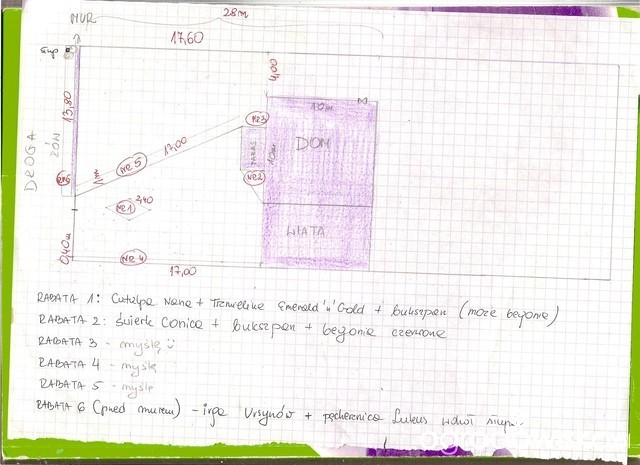 MUR
28m
17,60
4,00
słup
13,80
DROGA
NR3
10m
17,00
DOM
TARAS
10m
NR5
NR6
1m
NR2
NR1
2,40
WIATA
0,40m
NR4
17,00
RABATA 1: Catalpa Nana + Trzmielina Emerald 'n' Gold + bukszpan (może begonie)
RABATA 2: świerk Conica + bukszpan + begonie czerwone
RABATA 3 - myślę
RABATA 4 - myślę
RABATA 5 - myślę
RABATA 6 (przed murem) - irga Ursynów + pęcherznica Luteus wokół słupa..